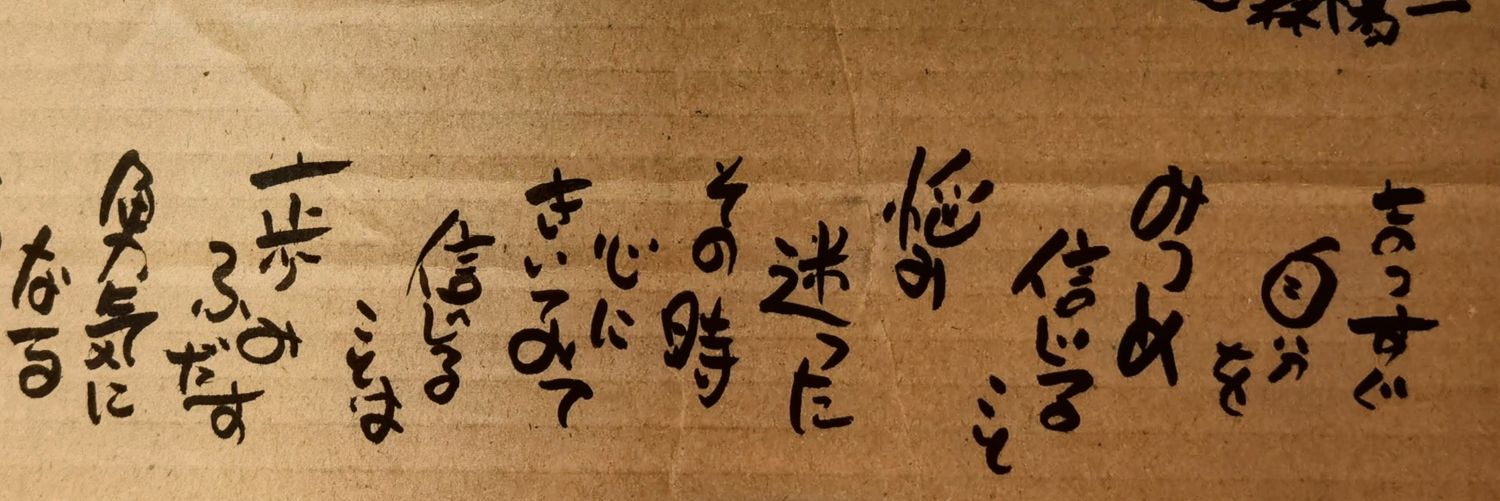 まっすぐ
自分を
みつめ
信じる
こと
悩み
迷った
その時
心に
きいてみて
信じる
ことは
一歩
ふみだす
勇気に
なる